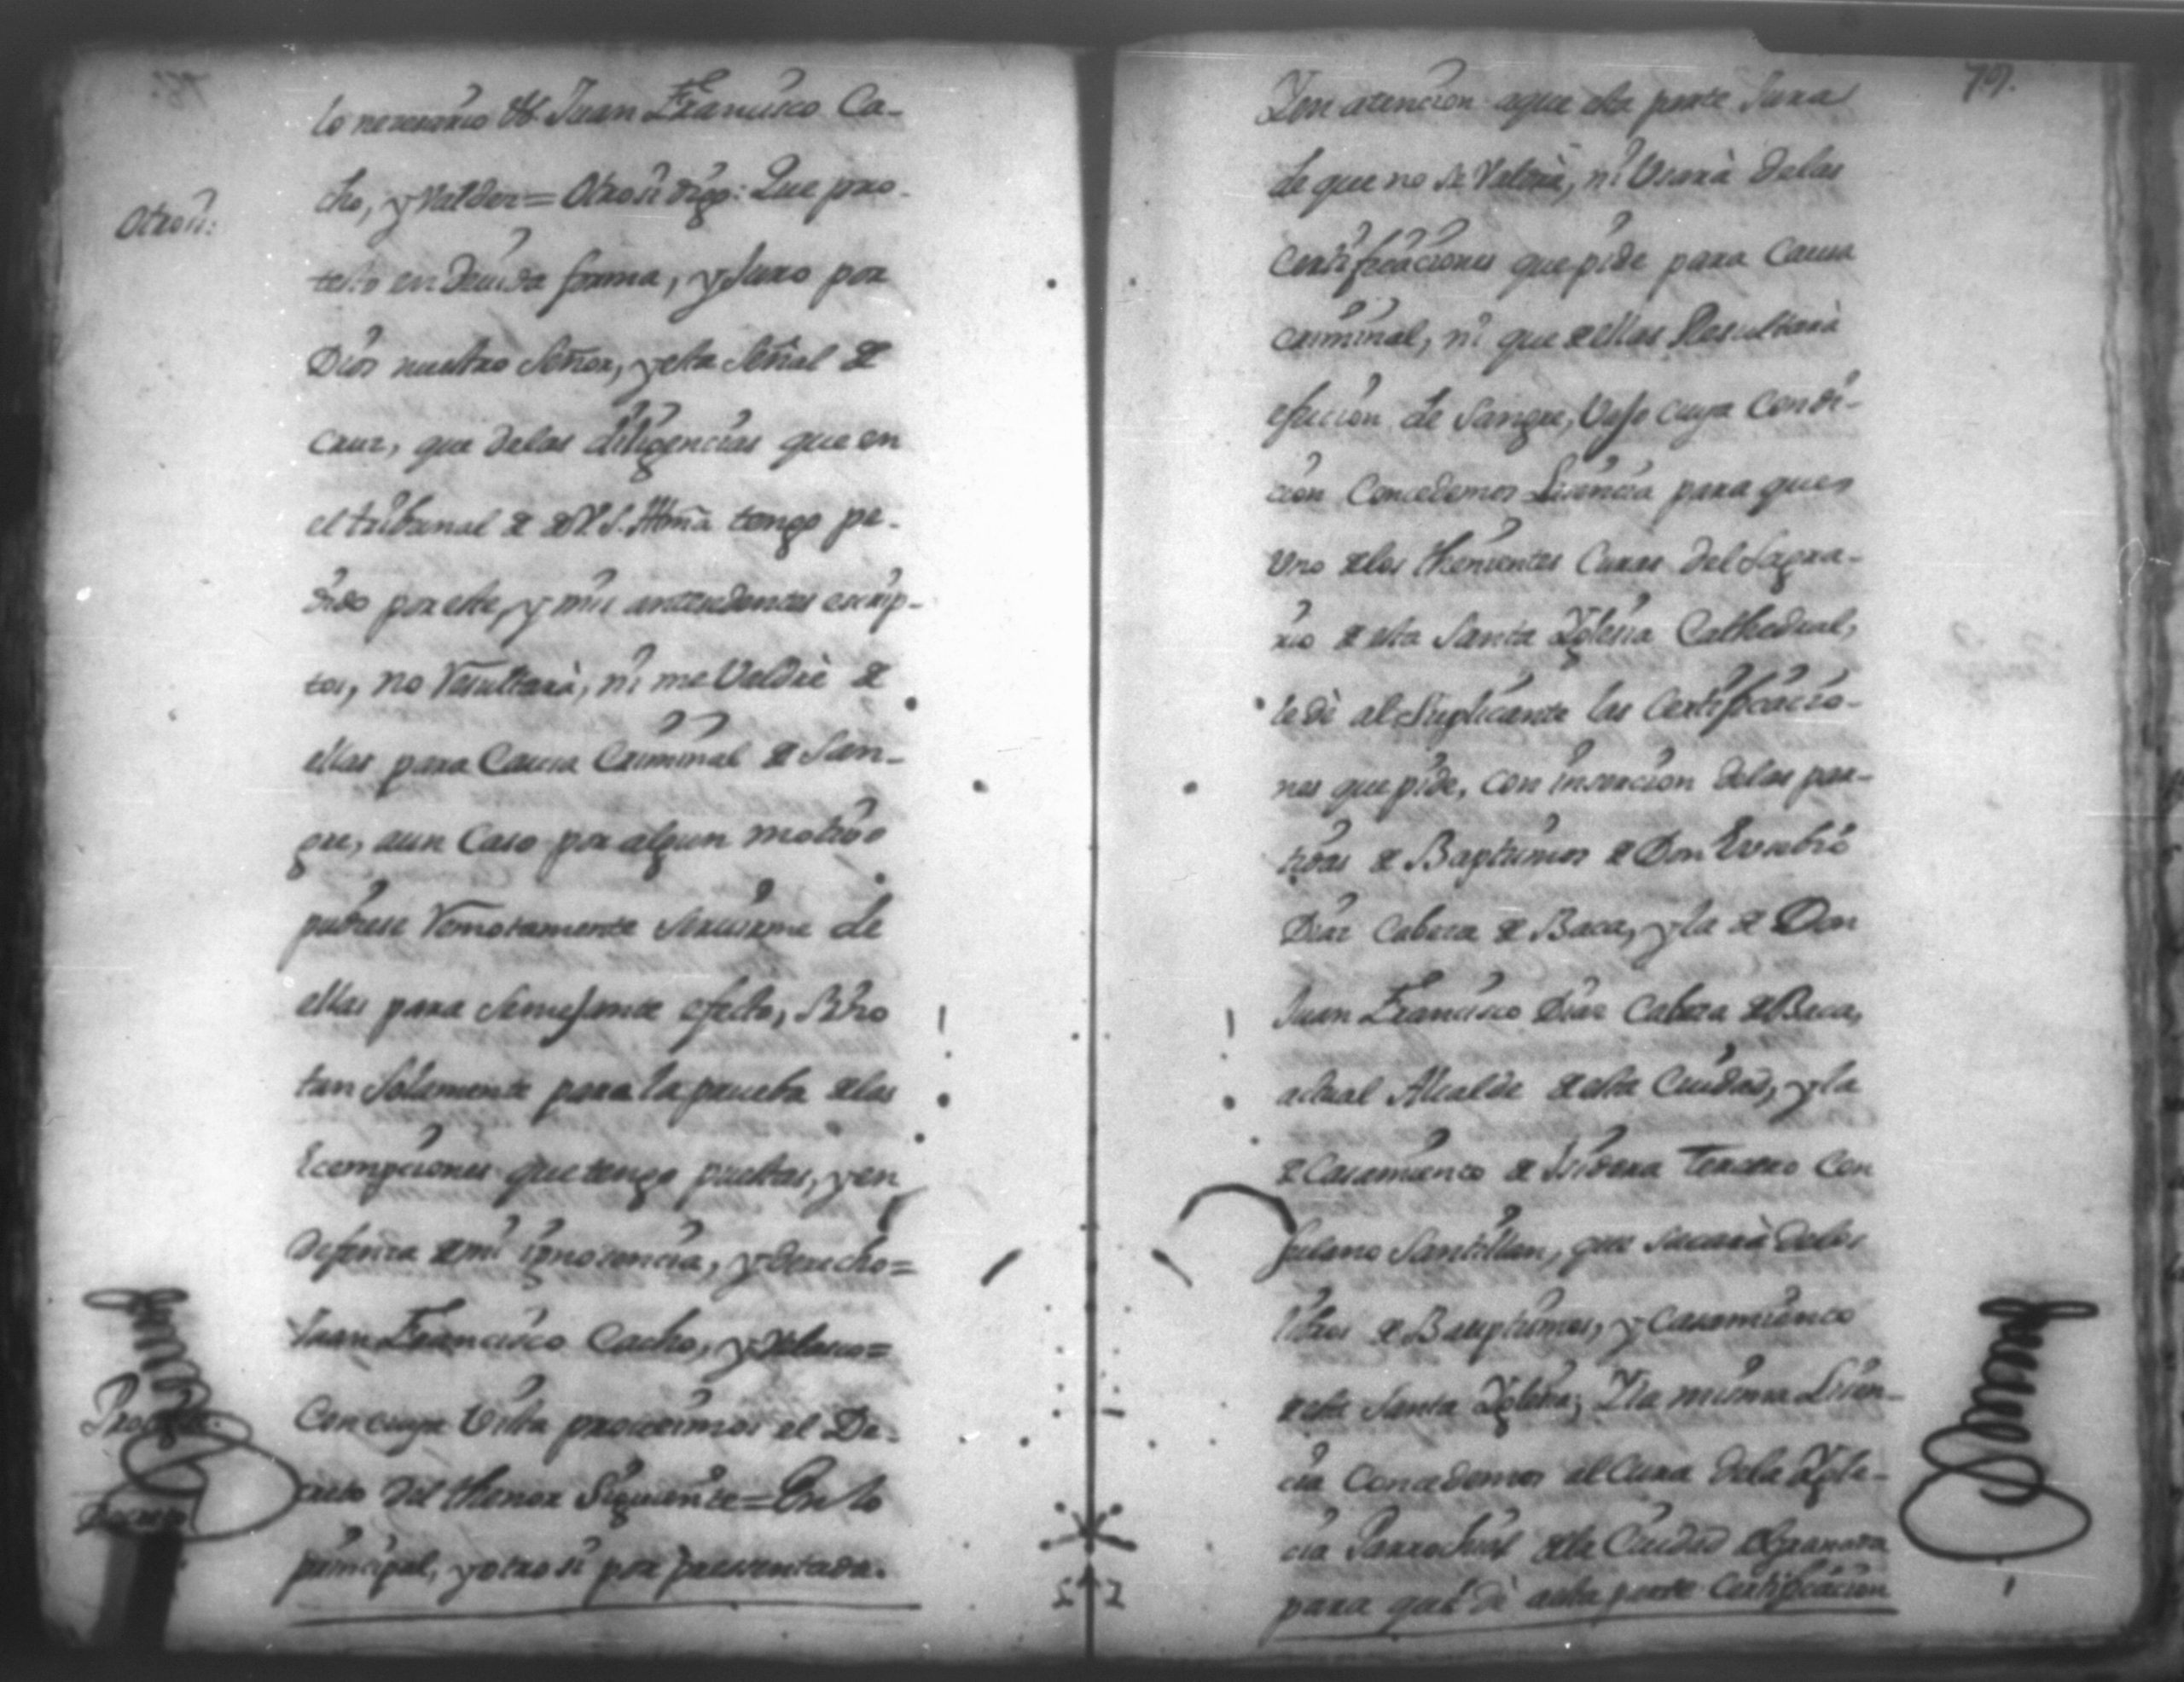 lo nesesario &c Juan Francisco Ca-
cho, y Valdez = Otrosi digo: Que pro-
Otrosi:
testo en deuida forma, y Juro por
Dios nuestro Señor, y esta Señal de
Cruz, que delas diligencias que en
el tribunal de V.S. Illmã tengo pe-
dido por este, y mis antesedentes escrip-
tos, no resultarà, ni me Valdrè de
ellas para Causa Criminal de San-
gre, aun Caso por algun motivo
pudiese remotamente Seruirme de
ellas para Semejante efecto, Sino
tan Solamente para la prueba delas
Ecempciones que tengo puestas, y en
defensa demi ignosencia, y derecho=
Juan Francisco Cacho, y
Con cuya Vista proveimos el De-
creto del thenor Siguiente= En lo
Decreto
principal, y otro si por presentada.
79.
Y en atencion aque esta parte Jura
de que no se Valdrà, ni Usarà delas
Certificaciones que pide para Causa
criminal, ni que dellas Resultarà
efucion de Sangre, Vajo cuya Condi-
cion Concedemos Lisencia para que
Uno delos thenientes Curas del Sagra-
rio de esta Santa Yglesia Cathedral,
le dè al Suplicante las Certificacio-
nes que pide, con insercion delas par-
tidas de Baptismos de Don Eusebio
Diaz Cabeza de Baca, y la de Don
Juan Francisco Diaz Cabeza de Baca,
actual Alcalde de esta Ciudad, y la
de Casamiento de Isidora Tercero con
fulano Santillan, que sacarà delos
libros de Bauptismos, y Casamiento
de esta Santa Yglesia; Y la misma Lisen-
cia Concedemos al Cura dela Ygle-
cia Parrochial dela Ciudad de Granada
para que dè aesta parte Certificacion